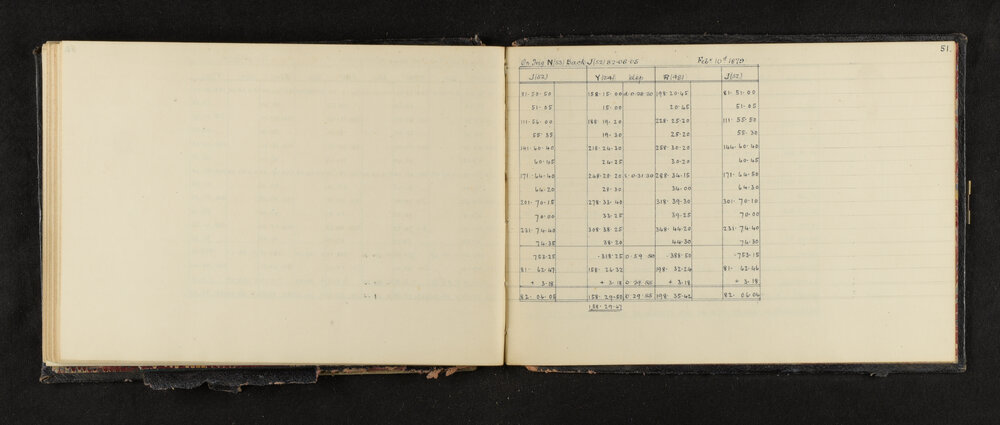 51.
On Trig N(53) Back J(52) 82-06-05 Feb. 10th 1879
J(52) Y(24) R(98) J(52)
81-50-50 158-15-00 d 0-28-20 198-20-45 81-51-00
51-05 15-00 20-45 51-05
111-56-00 188-19-20 228-25-20 111-55-50
55-35 19-30 25-20 55-30
141-60-40 218-24-30 258-30-20 144-60-40
60-45 24-25 30-20 60-45
171-64-40 248-28-20 0-31-30 288-34-15 171-64-50
64-20 28-30 34-00 64-30
201-70-15 278-33-40 318-39-30 301-70-10
70-00 33-25 39-25 70-00
231-74-40 308-38-25 348-44-20 231-74-40
74-35 38-20 44-30 74-30
753-25 318-25 0-59-50 388-50 753-15
81-62-47 158-26-32 198-32-24 81-62-46
+ 3-18 + 3-18 0-29-55 + 3-18 + 3-18
82-06-05 158-29-50 0-29-55 198-35-42 82-06-04
158-29-47